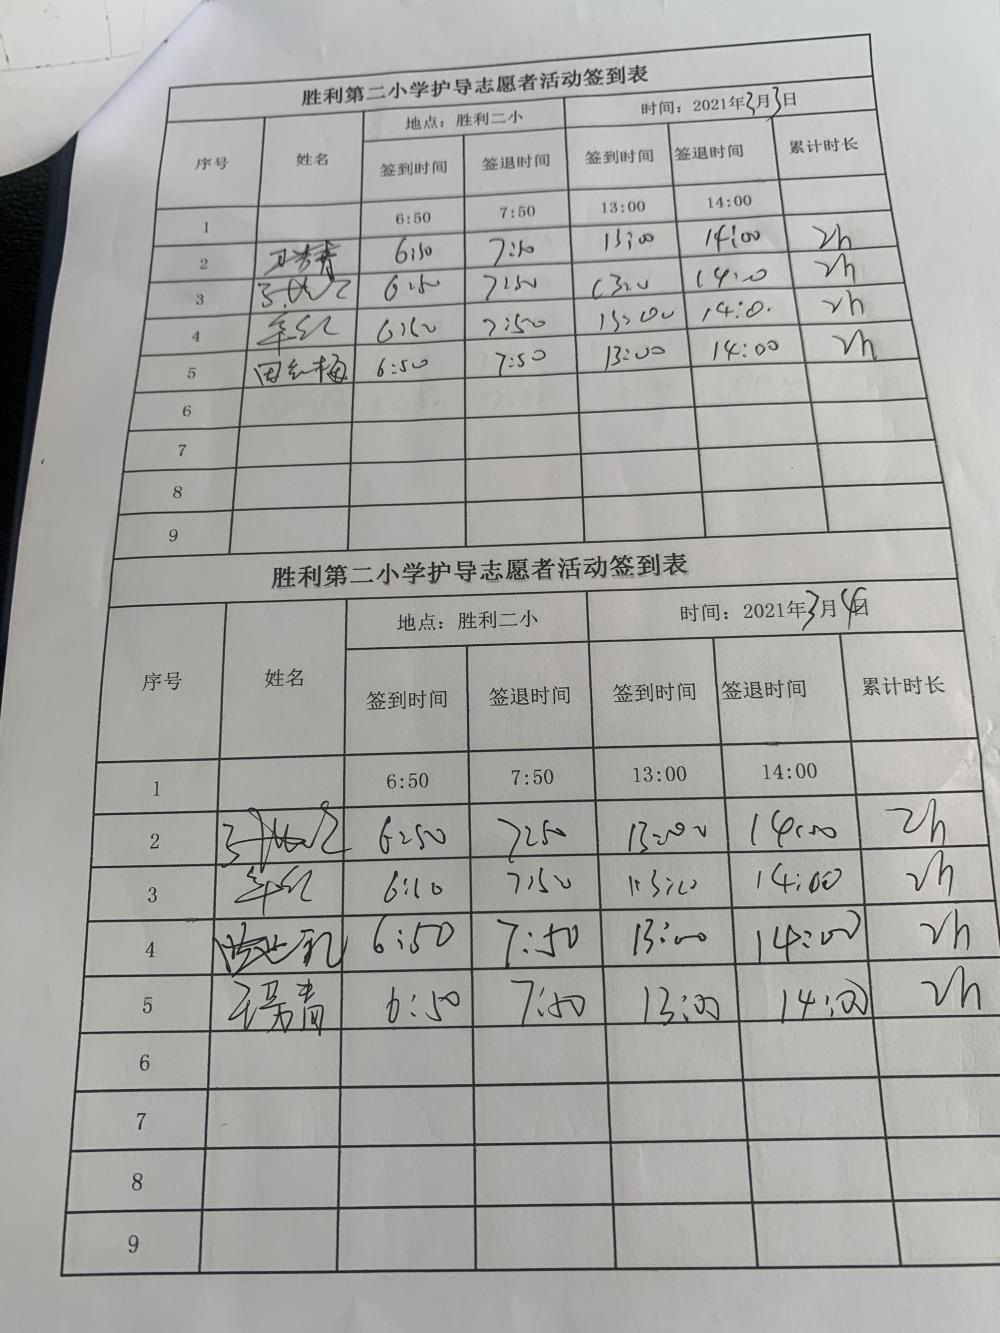 胜利第二小学护导志愿者活动签到表
地点：胜利二小 时间：2021年3月3日
序号 姓名 签到时间 签退时间 签到时间 签退时间 累计时长
1 6:50 7:50 13:00 14:00
2 6:50 7:50 13:00 14:00 2h
3 6:50 7:50 14:00 2h
4 6:50 7:50 13:00 14:0. 2h
5 田红梅 6:50 7:50 13:00 14:00 2h
6
7
8
9
胜利第二小学护导志愿者活动签到表
地点：胜利二小 时间：2021年3月4日
序号 姓名 签到时间 签退时间 签到时间 签退时间 累计时长
1 6:50 7:50 13:00 14:00
2 6:50 7:50 13:00 14:00 2h
3 6:50 7:50 14:00 2h
4 6:50 7:50 13:00 14:00 2h
5 6:50 7:50 13:00 14:00 2h
6
7
8
9